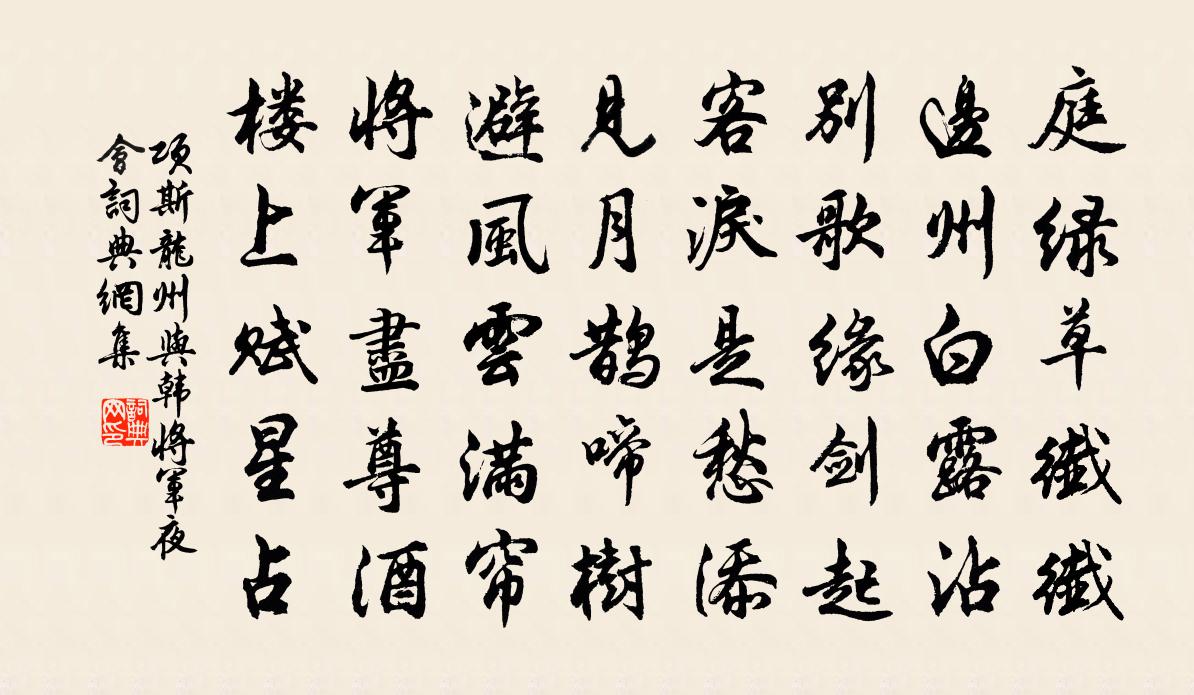 庭绿草纖纖
邊州白露沾
别歌缘剑起
客淚是愁添
見月鹊啼樹
避風雲满帘
將軍盡尊酒
楼上赋星占
项斯龍州與韩將軍夜
會詞典網集
詞典网印